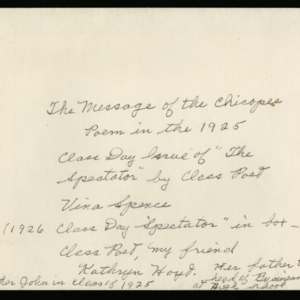 The Message of the Chicopee
Poem in the 1925
Class Day Issue of "The
Spectator" by Class Poet
Vina Spence
(1926 Class Day "Spectator" in box -
Class Poet, my friend
Kathryn Hoyd. Her father
John in class of 1925 of High School